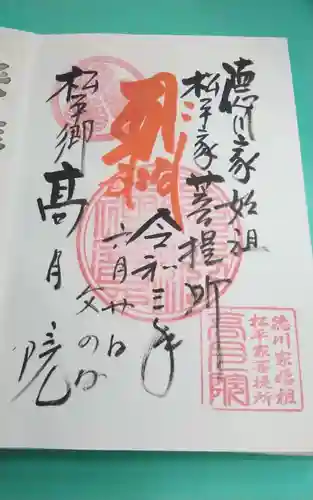 德川家始祖
松平家菩提所
令和三年
六月廿日
父の日
松平郷
高月院
德川家始祖
松平家菩提所
高月院